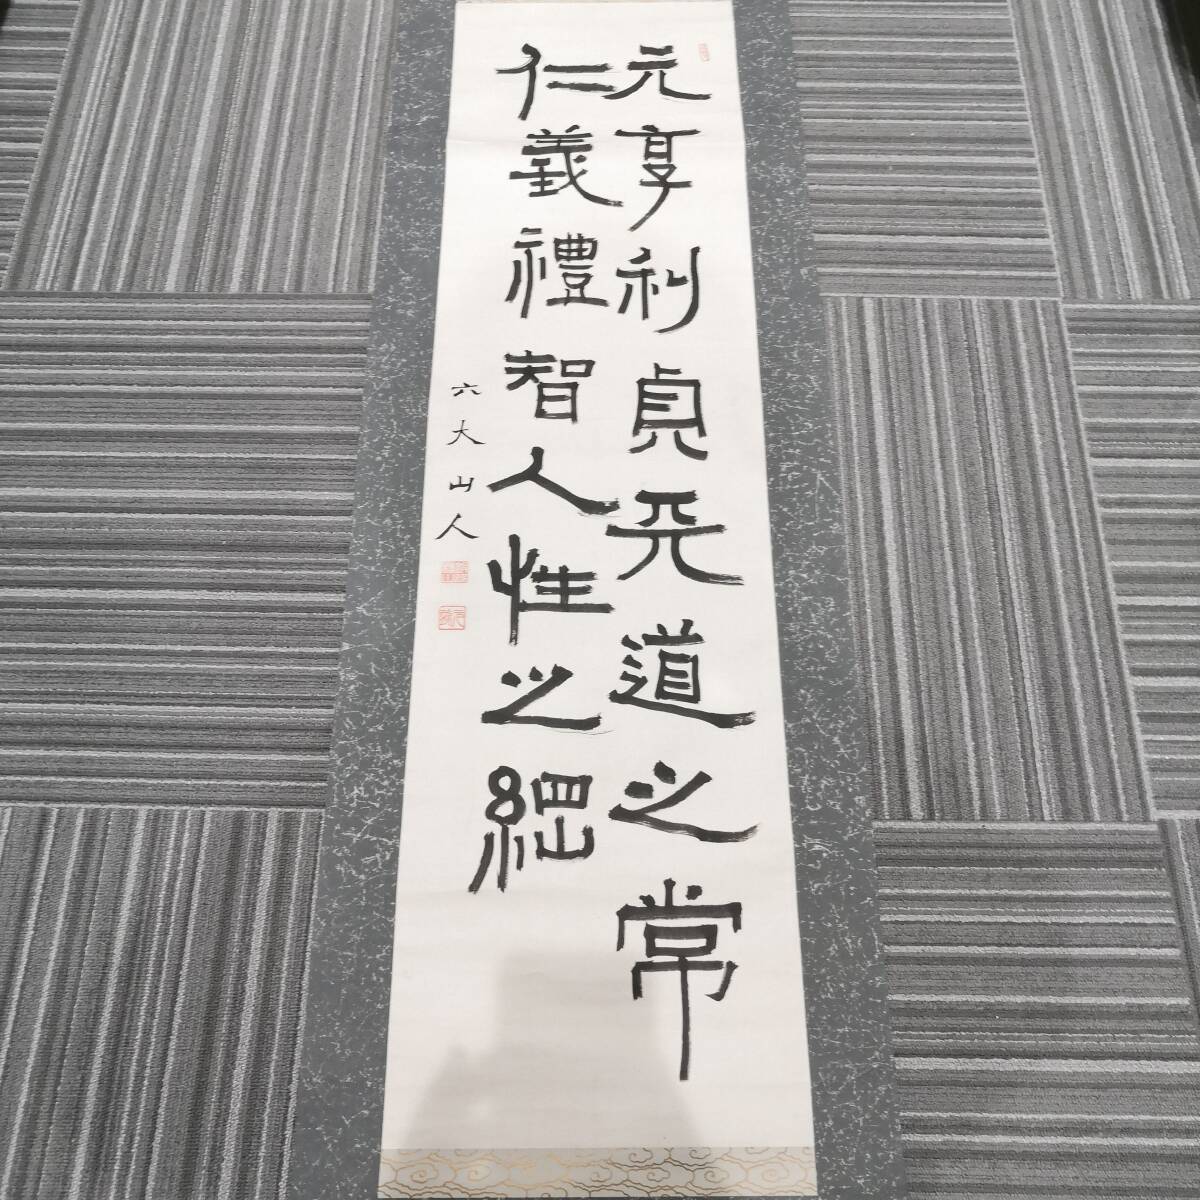 元亨利貞天道之常
仁義禮智人性之綱
六大山人